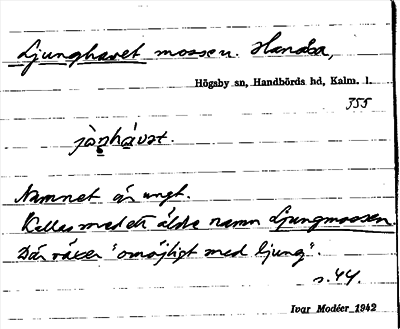 Ljunghavet mossen. Hanåsa,
Högsby sn, Handbörds hd, Kalm. l.
355
jòŋhávət.
Namnet är ungt.
Kallas med ett äldre namn Ljungmossen.
Där växer "omöjligt med ljung".
s. 44.
Ivar Modéer 1942